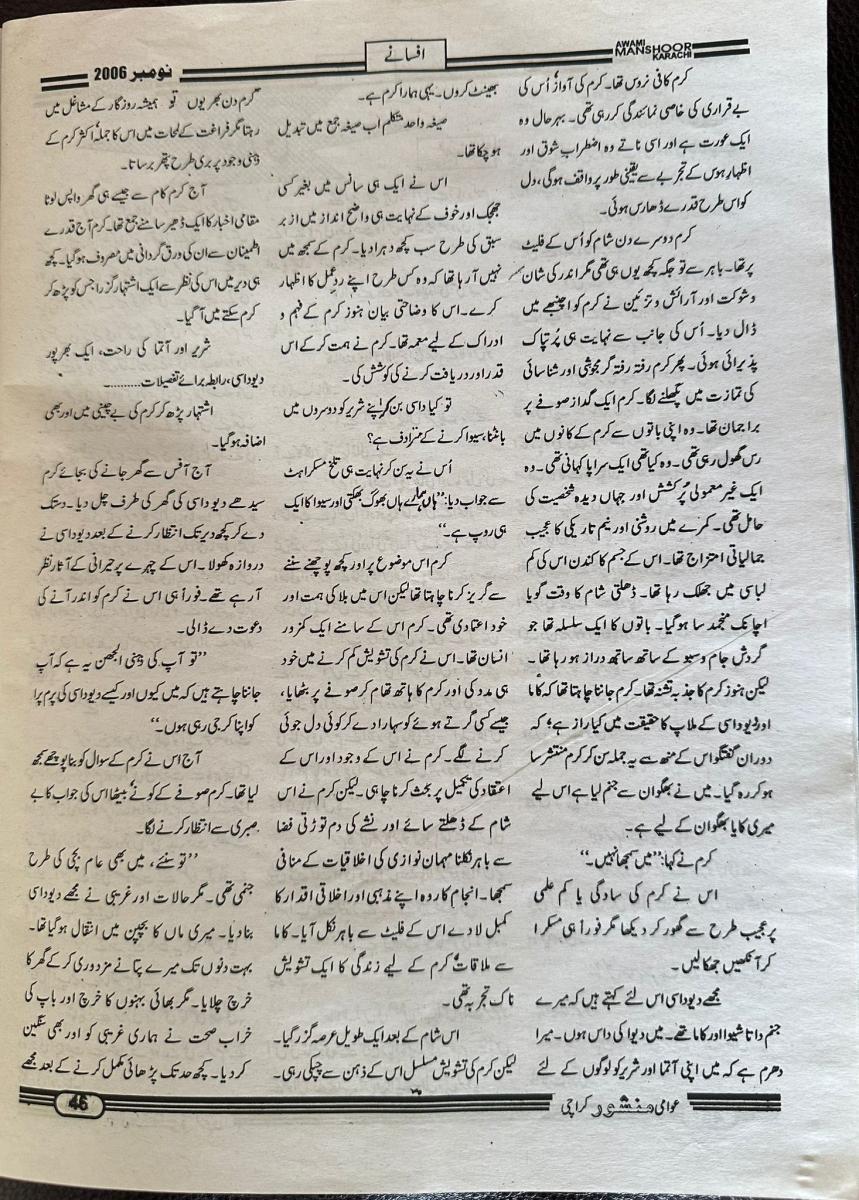 نومبر 2006
افسانے
AWAMI
MANSHOOR
KARACHI
کرم کافی نروس تھا۔ کرم کی آواز اُس کی
بے قراری کی خاصی نمائندگی کر رہی تھی۔ بہرحال وہ
ایک عورت ہے اور اسی ناتے وہ اضطرابِ شوق اور
اظہارِ ہوس کے تجربے سے یقینی طور پر واقف ہوگی، دل
کو اس طرح قدرے ڈھارس ہوئی۔
کرم دوسرے دن شام کو اُس کے فلیٹ
پر تھا۔ باہر سے تو جگہ کچھ یوں ہی تھی مگر اندر کی شان
و شوکت اور آرائش و تزئین نے کرم کو اچنبھے میں
ڈال دیا۔ اُس کی جانب سے نہایت ہی پُر تپاک
پذیرائی ہوئی۔ پھر کرم رفتہ رفتہ گرمجوشی اور شناسائی
کی تمازت میں پگھلنے لگا۔ کرم ایک گداز صوفے پر
براجمان تھا۔ وہ اپنی باتوں سے کرم کے کانوں میں
رس گھول رہی تھی۔ وہ کیا تھی ایک سراپا کہانی تھی۔ وہ
ایک غیر معمولی پُرکشش اور جہاں دیدہ شخصیت کی
حامل تھی۔ کمرے میں روشنی اور نیم تاریکی کا عجیب
جمالیاتی امتزاج تھا۔ اس کے جسم کا کندن اس کی کم
لباسی میں جھلک رہا تھا۔ ڈھلتی شام کا وقت گویا
اچانک منجمد سا ہوگیا۔ باتوں کا ایک سلسلہ تھا جو
گردشِ جام و سبو کے ساتھ ساتھ دراز ہو رہا تھا۔
لیکن ہنوز کرم کا جذبہ تشنہ تھا۔ کرم جاننا چاہتا تھا کہ کاما
اور دیوداسی کے ملاپ کا حقیقت میں کیا راز ہے؟ کہ
دوران گفتگو اس کے منہ سے یہ جملہ سن کر کرم منتشر سا
ہو کر رہ گیا۔ میں نے بھگوان سے جنم لیا ہے اس لیے
میری کایا بھگوان کے لیے ہے۔
کرم نے کہا: ”میں سمجھا نہیں۔“
اس نے کرم کی سادگی یا کم علمی
پر عجیب طرح سے گھور کر دیکھا مگر فوراً ہی مسکرا
کر آنکھیں جھکا لیں۔
مجھے دیوداسی اس لئے کہتے ہیں کہ میرے
جنم داتا شیوا اور کاما تھے۔ میں دیوا کی داس ہوں۔ میرا
دھرم ہے کہ میں اپنی آتما اور شریر کو لوگوں کے لئے
بھینٹ کروں۔ یہی ہمارا کرم ہے۔
صیغہ واحد متکلم اب صیغہ جمع میں تبدیل
ہو چکا تھا۔
اس نے ایک ہی سانس میں بغیر کسی
جھجک اور خوف کے نہایت ہی واضح انداز میں ازبر
سبق کی طرح سب کچھ دہرا دیا۔ کرم کے سمجھ میں
نہیں آ رہا تھا کہ وہ کس طرح اپنے ردِ عمل کا اظہار
کرے۔ اس کا وضاحتی بیان ہنوز کرم کے فہم و
ادراک کے لیے معمہ تھا۔ کرم نے ہمت کر کے اس
قدر اور دریافت کرنے کی کوشش کی۔
تو کیا داسی بن کر اپنے شریر کو دوسروں میں
بانٹنا سیوا کرنے کے مترادف ہے؟
اُس نے یہ سن کر نہایت ہی تلخ مسکراہٹ
سے جواب دیا: ”ہاں ہمارے ہاں بھوگ بھکتی اور سیوا کا ایک
ہی روپ ہے۔“
کرم اس موضوع پر اور کچھ پوچھنے سننے
سے گریز کرنا چاہتا تھا لیکن اس میں بلا کی ہمت اور
خود اعتمادی تھی۔ کرم اس کے سامنے ایک کمزور
انسان تھا۔ اس نے کرم کی تشویش کم کرنے میں خود
ہی مدد کی اور کرم کا ہاتھ تھام کر صوفے پر بٹھایا،
جیسے کسی گرتے ہوئے کو سہارا دے کر کوئی دل جوئی
کرنے لگے۔ کرم نے اس کے وجود اور اس کے
اعتقاد کی تکمیل پر بحث کرنا چاہی۔ لیکن کرم نے اس
شام کے ڈھلتے سائے اور نشے کی دم توڑتی فضا
سے باہر نکلنا مہمان نوازی کی اخلاقیات کے منافی
سمجھا۔ انجام کار وہ اپنے مذہبی اور اخلاقی اقدار کا
کمبل لادے اس کے فلیٹ سے باہر نکل آیا۔ کاما
سے ملاقات کرم کے لیے زندگی کا ایک تشویش
ناک تجربہ تھی۔
اس شام کے بعد ایک طویل عرصہ گزر گیا۔
لیکن کرم کی تشویش مسلسل اس کے ذہن سے چپکی رہی۔
کرم دن بھر یوں تو ہمیشہ روزگار کے مشاغل میں
رہتا مگر فراغت کے لمحات میں اس کا جملہ اکثر کرم کے
ذہنی وجود پر بری طرح پتھر برساتا۔
آج کرم کام سے جیسے ہی گھر واپس لوٹا
مقامی اخبار کا ایک ڈھیر سامنے جمع تھا۔ کرم آج قدرے
اطمینان سے ان کی ورق گردانی میں مصروف ہو گیا۔ کچھ
ہی دیر میں اس کی نظر سے ایک اشتہار گزرا جس کو پڑھ کر
کرم سکتے میں آ گیا۔
شریر اور آتما کی راحت، ایک بھرپور
دیوداسی، رابطہ برائے تفصیلات..........
اشتہار پڑھ کر کرم کی بے چینی میں اور بھی
اضافہ ہو گیا۔
آج آفس سے گھر جانے کی بجائے کرم
سیدھے دیوداسی کی گھر کی طرف چل دیا۔ دستک
دے کر کچھ دیر تک انتظار کرنے کے بعد دیوداسی نے
دروازہ کھولا۔ اس کے چہرے پر حیرانی کے آثار نظر
آ رہے تھے۔ فوراً ہی اس نے کرم کو اندر آنے کی
دعوت دے ڈالی۔
”تو آپ کی ذہنی الجھن یہ ہے کہ آپ
جاننا چاہتے ہیں کہ میں کیوں اور کیسے دیوداسی کی پرم پرا
کو اپنا کر جی رہی ہوں۔“
آج اس نے کرم کے سوال کو بنا پوچھے سمجھ
لیا تھا۔ کرم صوفے کے کونے بیٹھا اس کی جواب کا بے
صبری سے انتظار کرنے لگا۔
”تو سنئے، میں بھی عام بچی کی طرح
جنمی تھی۔ مگر حالات اور غریبی نے مجھے دیوداسی
بنا دیا۔ میری ماں کا بچپن میں انتقال ہو گیا تھا۔
بہت دنوں تک میرے پتا نے مزدوری کر کے گھر کا
خرچ چلایا۔ مگر بھائی بہنوں کا خرچ اور باپ کی
خراب صحت نے ہماری غریبی کو اور بھی سنگین
کر دیا۔ کچھ حد تک پڑھائی مکمل کرنے کے بعد مجھے
46
عوامی منشور کراچی